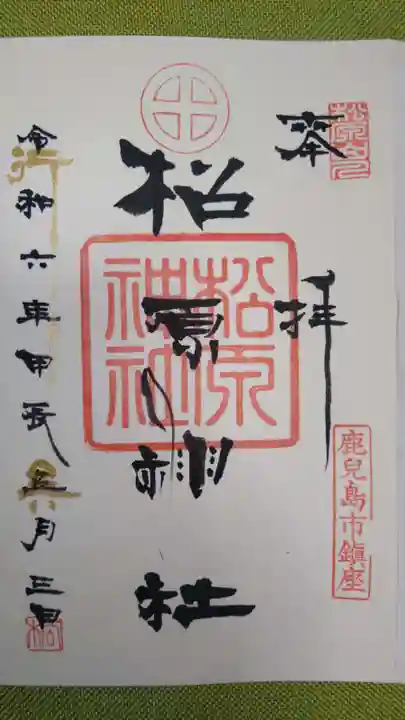 奉拝
鹿兒島市鎭座
松原神社
松原神社
令和六年甲辰五月三日
松